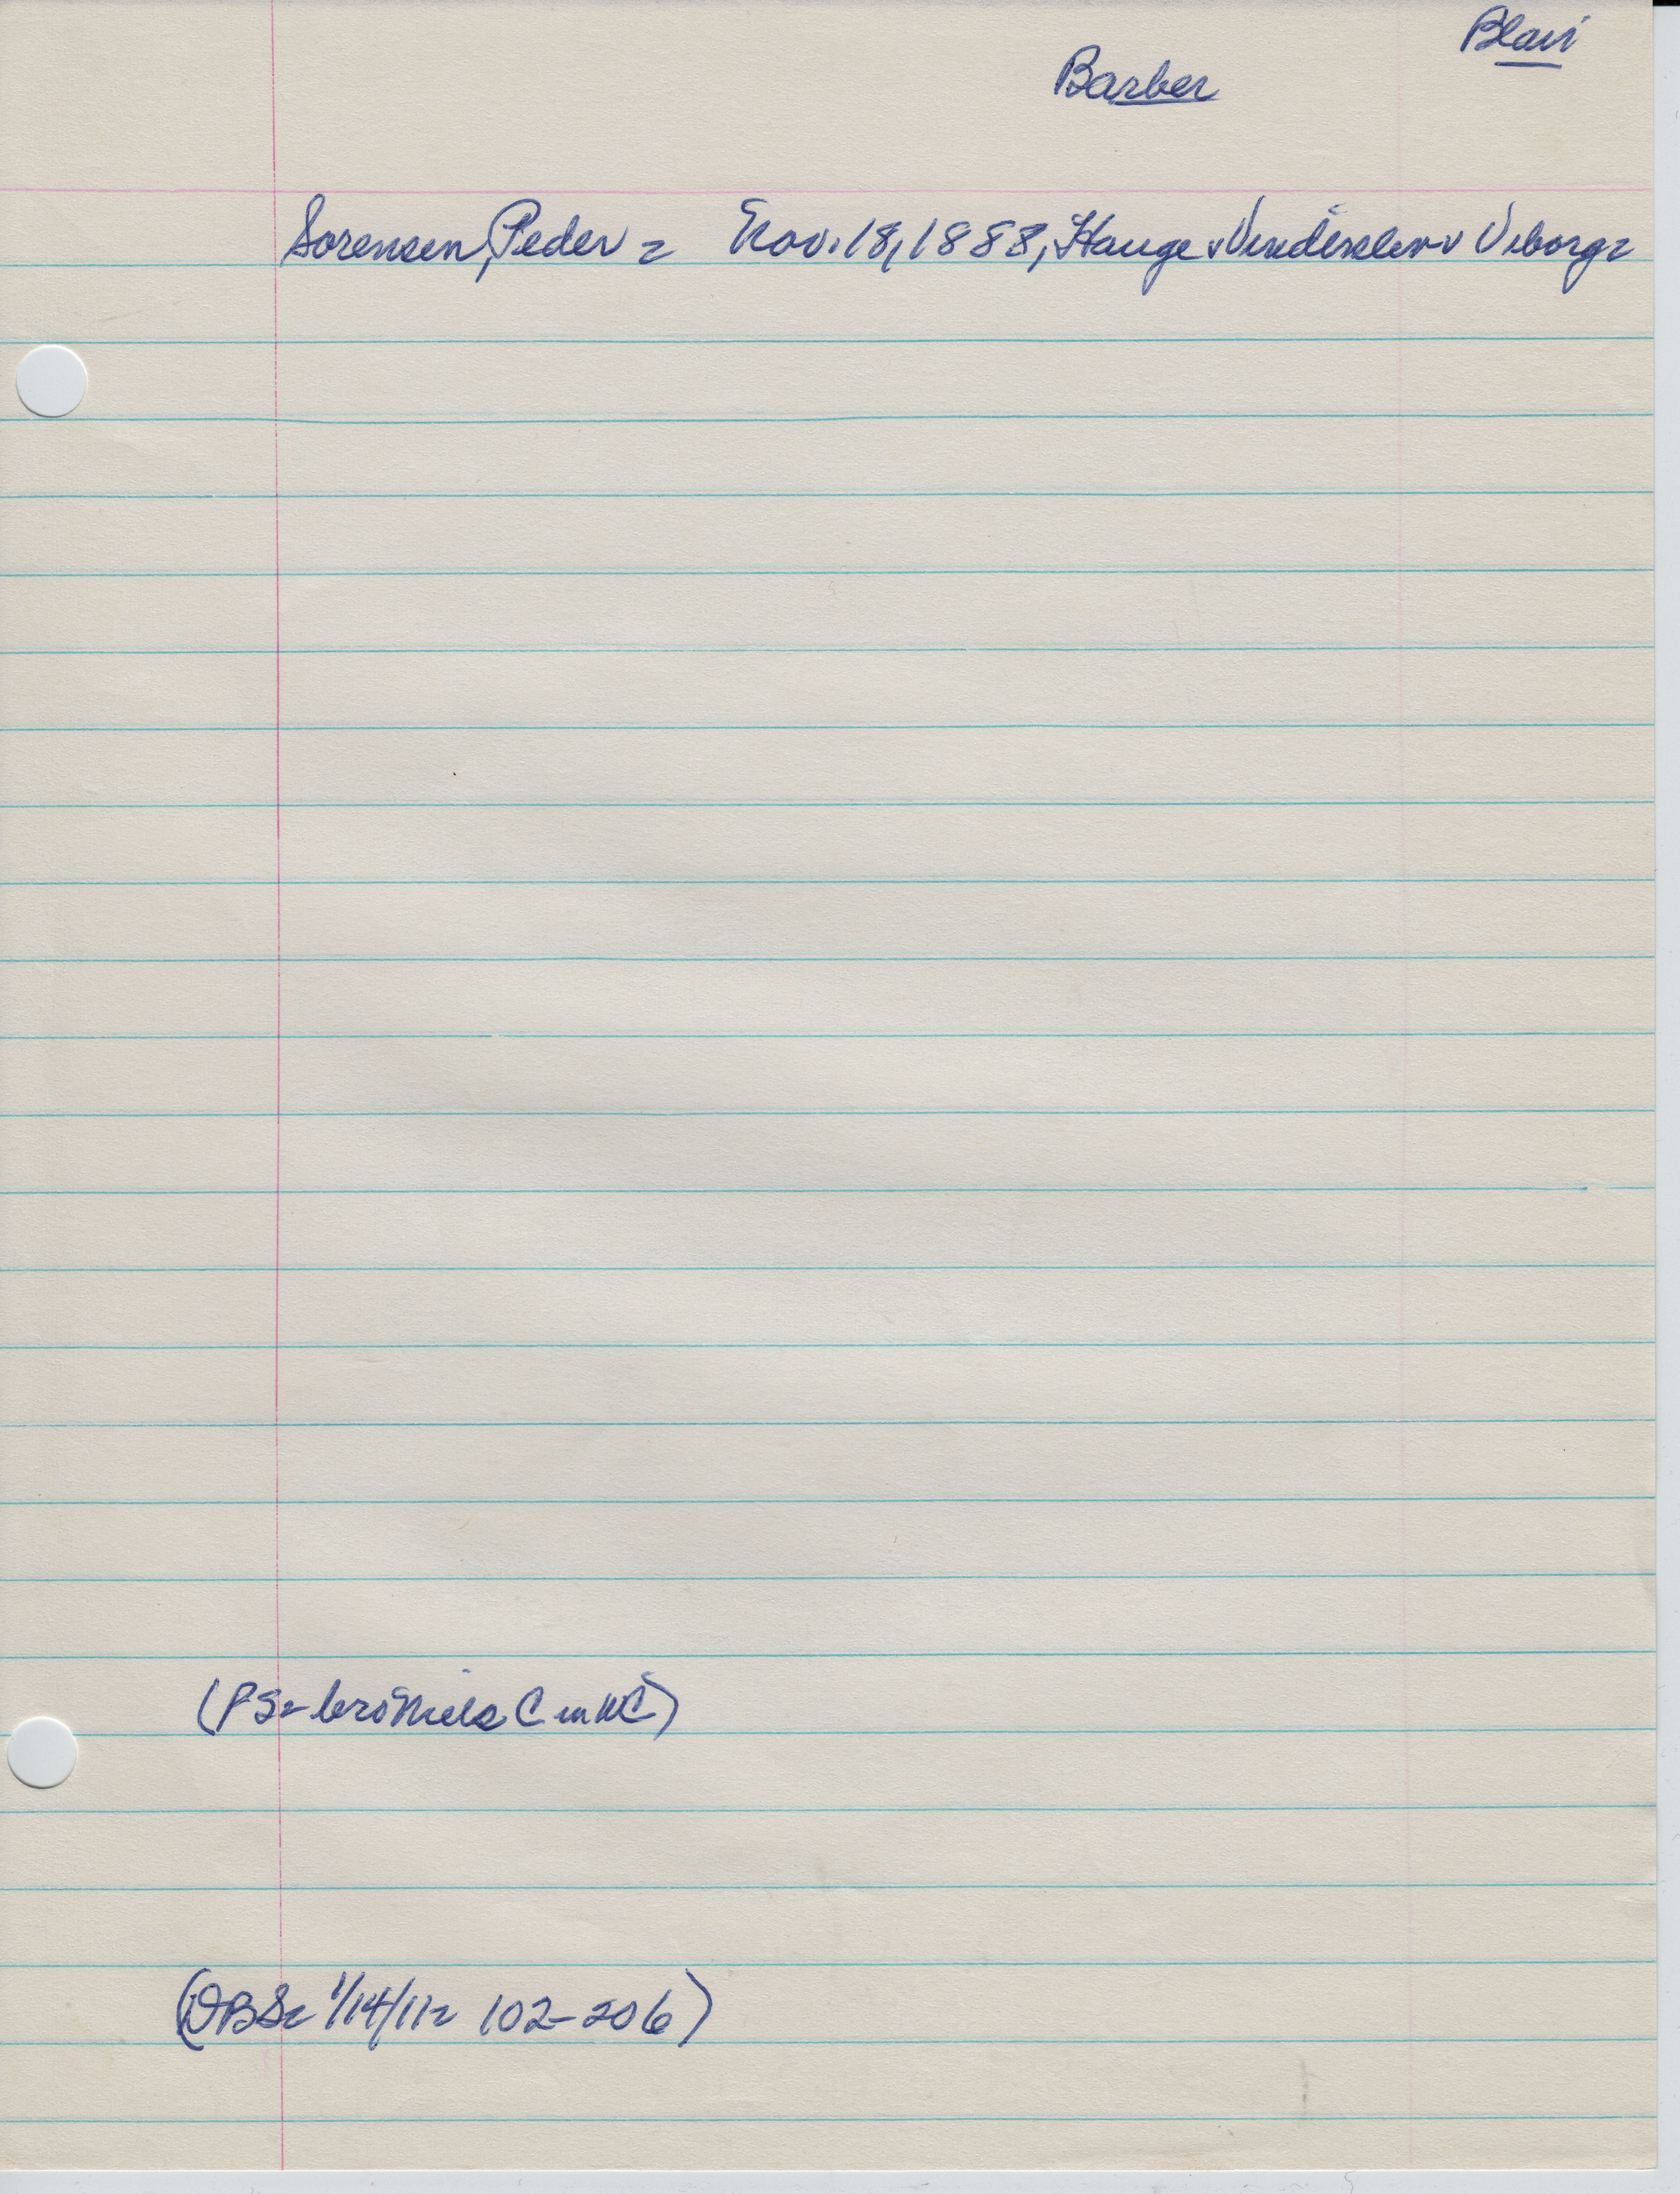 Blair
Barber
Sorensen, Peder = Nov. 18, 1888, Hauge v Vinderslev v Viborg=
(PS= bro Niels C in NC)
(DBS= 1/14/11= 102-206)